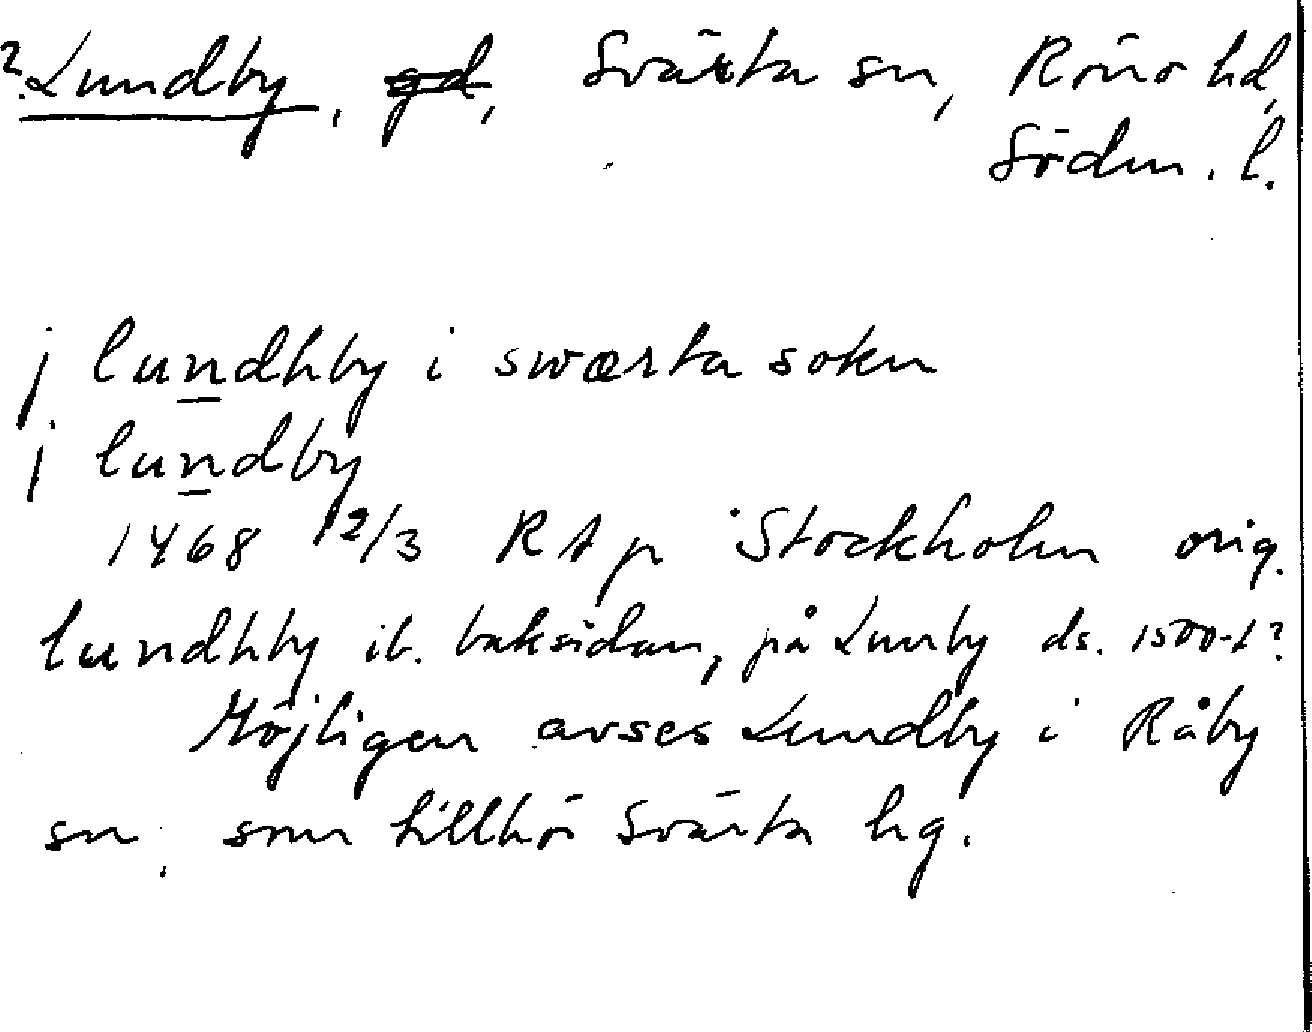 ? Lundby, gd, Svärta sn, Rönö hd,
Södm. l.
j lundhby i swærta sokn
j lundby
1468 12/3 RAp Stockholm orig.
lundhby ib. baksidan, på Lunby ds. 1500-t?
Möjligen avses Lundby i Råby
sn, som tillhör Svärta hg.